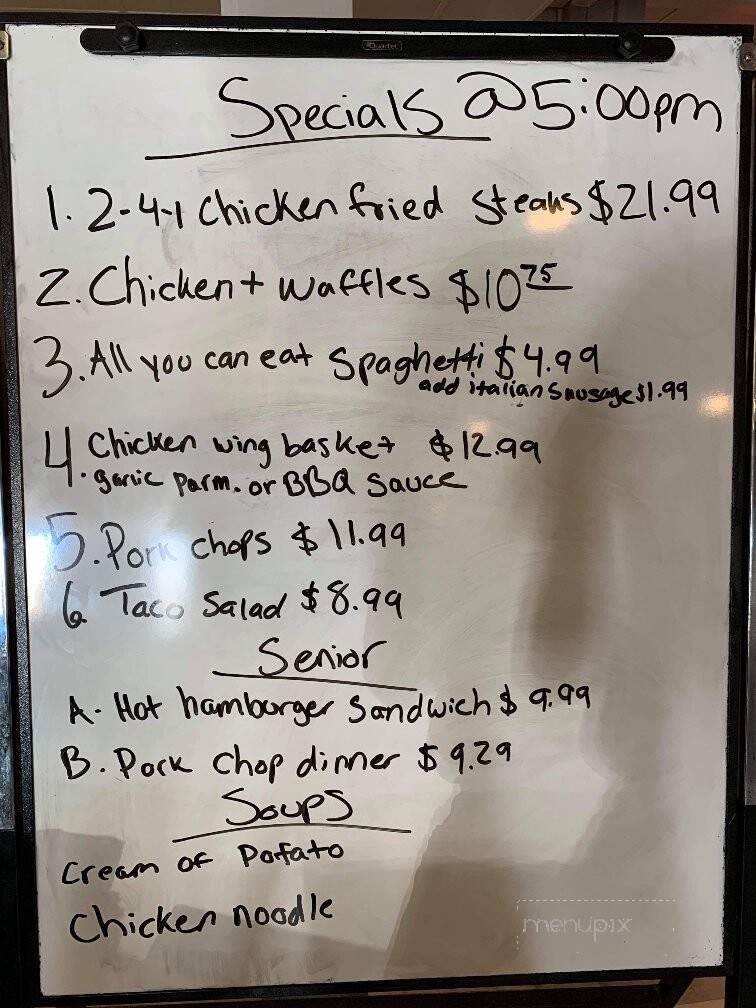 Quartet
Specials @ 5:00pm
1. 2-4-1 Chicken fried steaks $21.99
2. Chicken + Waffles $10 75
3. All you can eat Spaghetti $4.99
add italian Sausage $1.99
4. Chicken wing basket $12.99
garlic parm. or BBQ Sauce
5. Pork chops $11.99
6. Taco Salad $8.99
Senior
A. Hot hamburger Sandwich $9.99
B. Pork Chop dinner $9.29
Soups
Cream of Potato
Chicken noodle
menupix